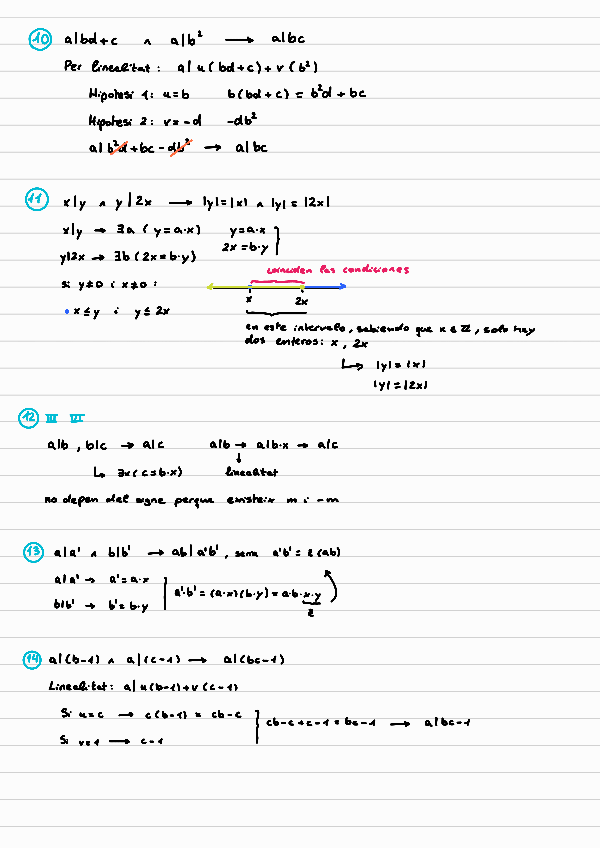 10 a|bd+c ∧ a|b² → a|bc
Per linealitat: a| u(bd+c)+v(b²)
Hipotesi 1: u=b b(bd+c) = b²d+bc
Hipotesi 2: v=-d -db²
a| b²d+bc-db² → a|bc
11 x|y ∧ y|2x → |y|=|x| ∧ |y|=|2x|
x|y → ∃a (y=a·x) y=a·x
2x=b·y
y|2x → ∃b (2x=b·y)
coinciden las condiciones
si y≠0 i x≠0 :
x 2x
• x≤y i y≤2x
en este intervalo, sabiendo que x∈ℤ, solo hay
dos enteros: x, 2x
↳ |y|=|x|
|y|=|2x|
12 III VI
a|b , b|c → a|c a|b → a|b·x → a|c
↳ ∃x(c=b·x) ↓ linealitat
no depen del signe perque existeix m i -m
13 a|a' ∧ b|b' → ab|a'b', sent a'b' = z(ab)
a|a' → a'=a·x
a'·b'=(a·x)(b·y)=a·b·x·y
b|b' → b'=b·y
z
14 a|(b-1) ∧ a|(c-1) → a|(bc-1)
Linealitat: a| u(b-1)+v(c-1)
Si u=c → c(b-1) = cb-c
cb-c+c-1=bc-1 → a|bc-1
Si v=1 → c-1